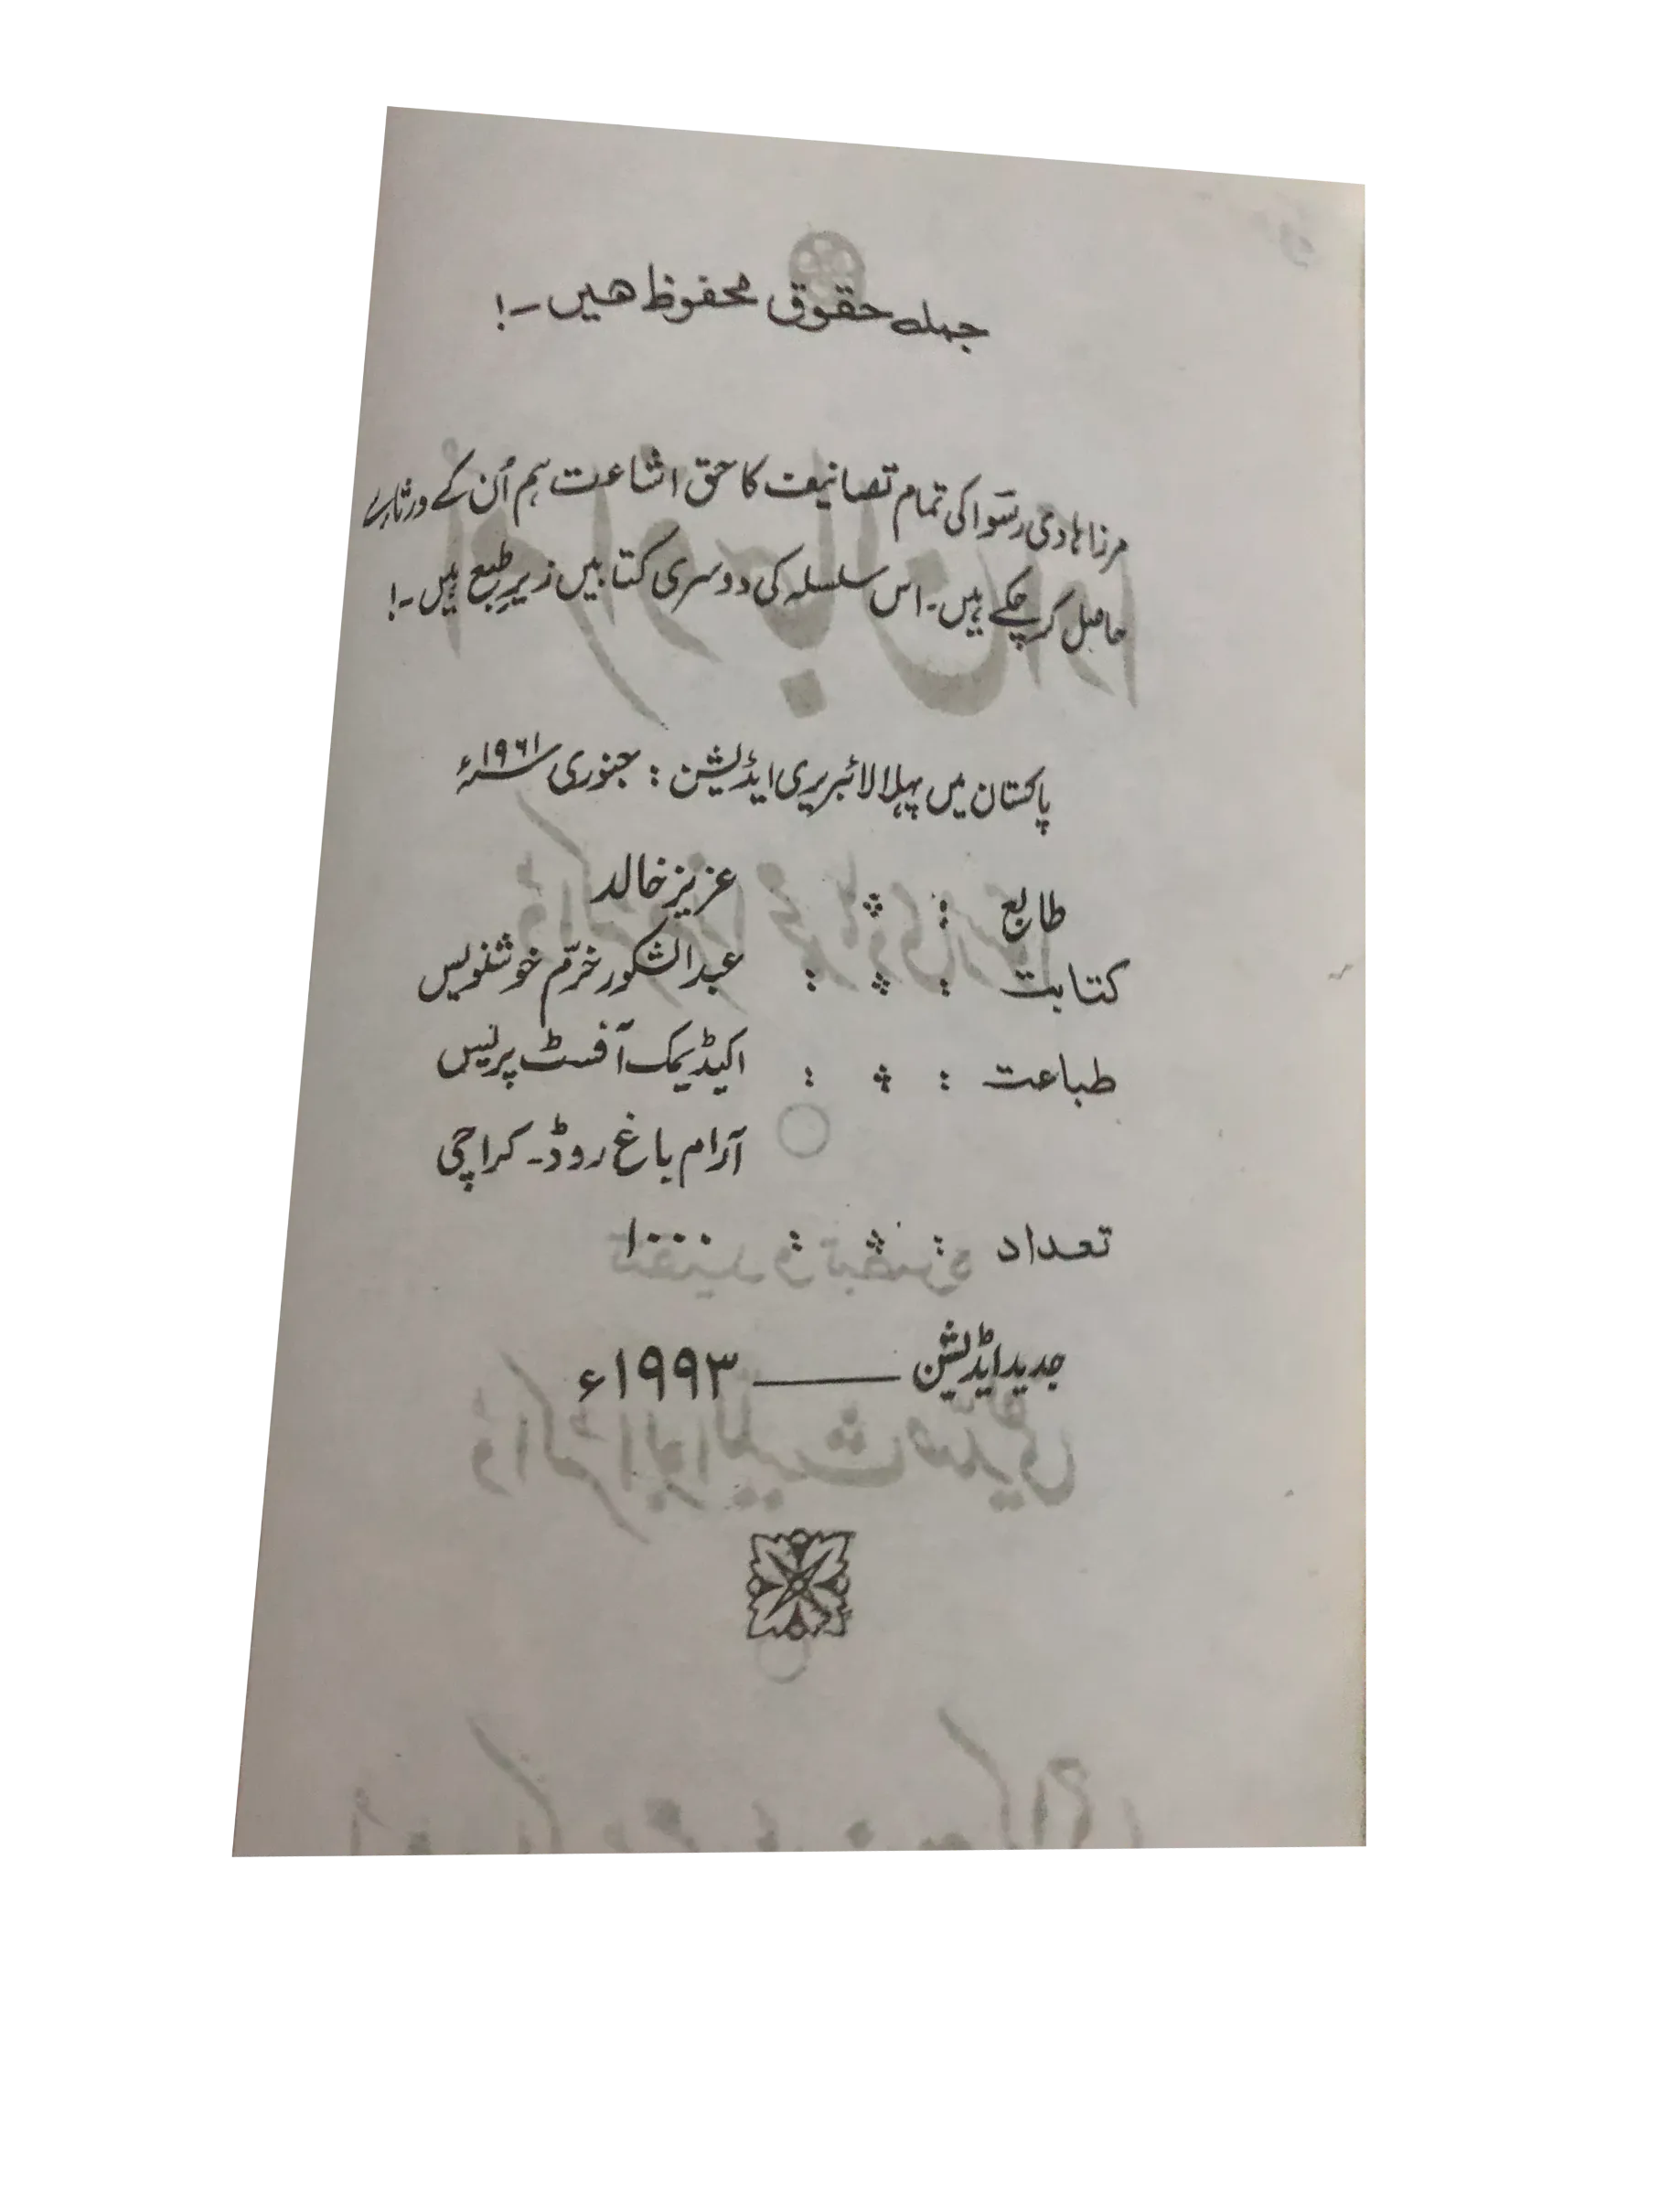 جملہ حقوق محفوظ ھیں ۔!
مرزا ھادی رسوا کی تمام تصانیف کا حق اشاعت ہم اُن کے ورثاء سے
حاصل کر چکے ہیں۔ اس سلسلہ کی دوسری کتابیں زیرِ طبع ہیں ۔!
پاکستان میں پہلا لائبریری ایڈیشن : جنوری ۱۹۶۱ء
طابع : عزیز خالد
کتابت : : عبدالشکور خرّم خوشنویس
طباعت : : اکیڈیمک آفسٹ پریس
آرام باغ روڈ۔ کراچی
تعداد : : ۱۰۰۰
جدید ایڈیشن ——— ۱۹۹۳ء